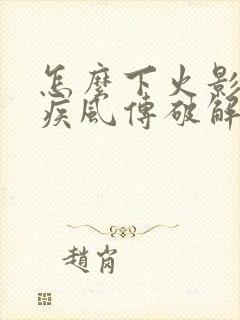 怎麼下火影
疾風傳破解
趙肖